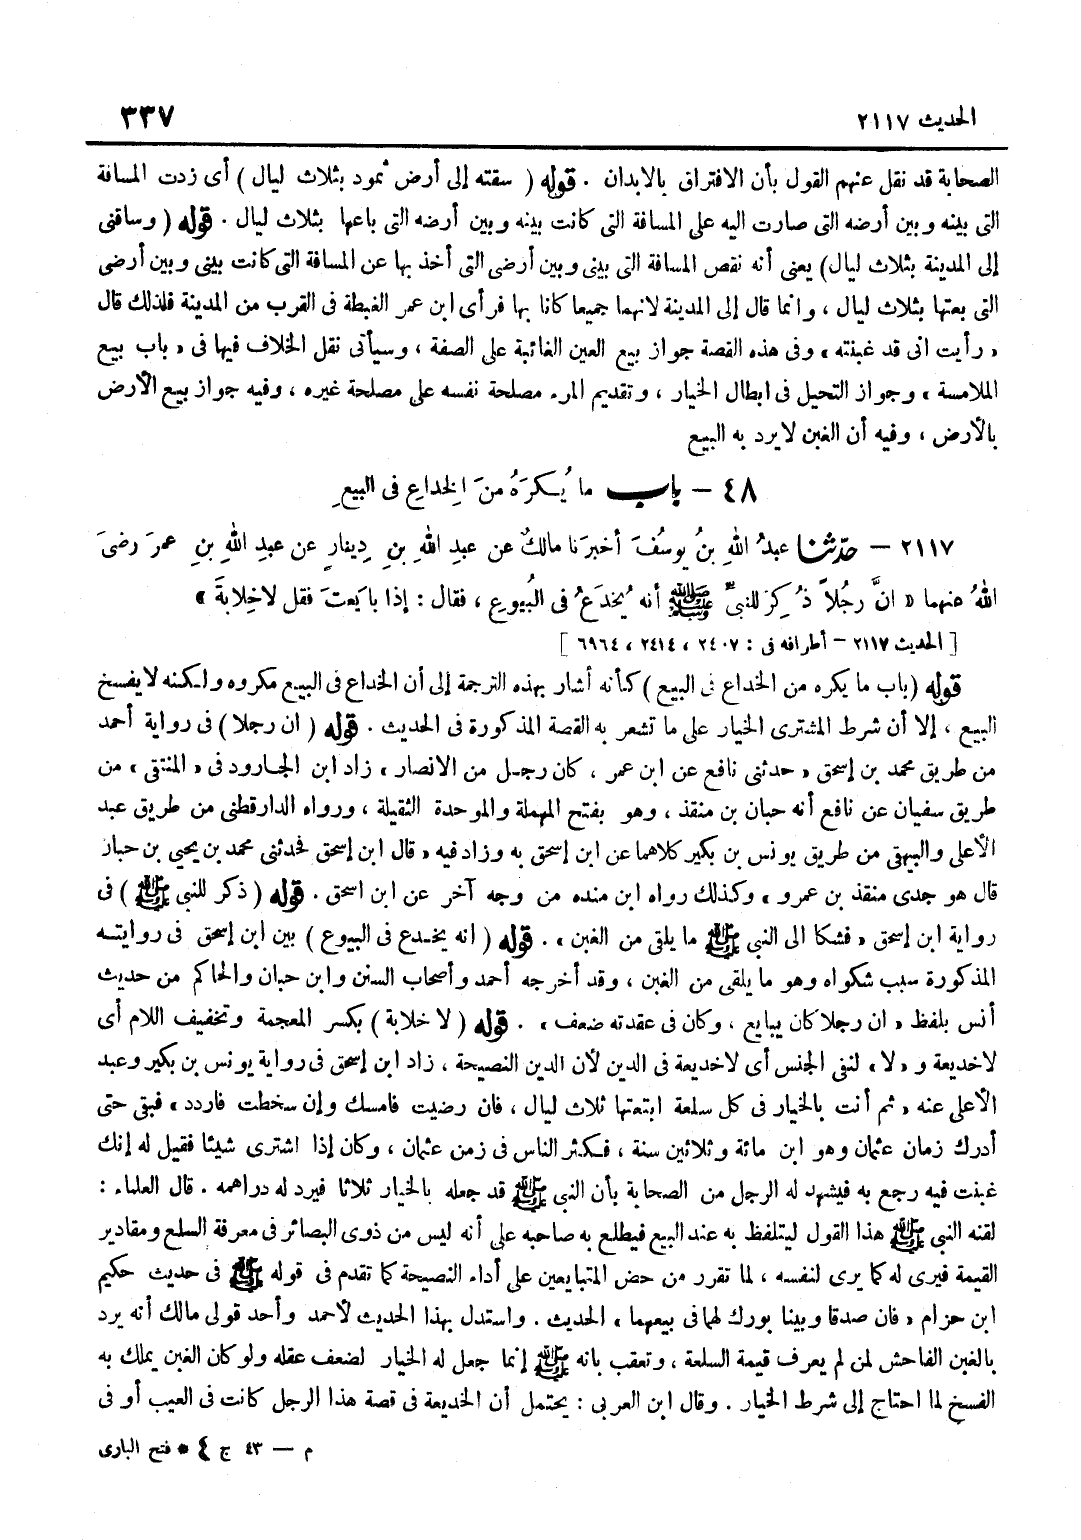 الحديث ٢١١٧
٣٣٧
الصحابة قد نقل عنهم القول بأن الافتراق بالابدان . قوله ( سقته إلى أرض ثمود بثلاث ليال ) أى زدت المسافة
التى بينه وبين أرضه التى صارت اليه على المسافة التى كانت بينه وبين أرضه التى باعها بثلاث ليال . قوله ( وساقنى
إلى المدينة بثلاث ليال) يعنى أنه نقص المسافة التى بينى وبين أرضى التى أخذ بها عن المسافة التى كانت بينى وبين أرضى
التى بعتها بثلاث ليال ، وانما قال إلى المدينة لانهما جميعا كانا بها فرأى ابن عمر الغبطة فى القرب من المدينة فلذلك قال
« رأيت انى قد غبنته » وفى هذه القصة جواز بيع العين الغائبة على الصفة ، وسيأتى نقل الخلاف فيها فى « باب بيع
الملامسة » وجواز التحيل فى ابطال الخيار ، وتقديم المرء مصلحة نفسه على مصلحة غيره ، وفيه جواز بيع الأرض
بالأرض ، وفيه أن الغبن لا يرد به البيع
٤٨ – باب ما يُكرَهُ منَ الخِداعِ فى البيعِ
٢١١٧ – حدّثنا عبدُ اللهِ بنُ يوسُفَ أخبرَنا مالكٌ عن عبدِ اللهِ بنِ دِينارٍ عن عبدِ اللهِ بنِ عمرَ رضىَ
اللهُ عنهما « انَّ رجُلاً ذُكِرَ للنبىِّ ﷺ أنه يُخدَعُ فى البُيوعِ ، فقال : إذا بايَعتَ فقل لاخِلابةَ »
[ الحديث ٢١١٧ – أطرافه فى : ٢٤٠٧ ، ٢٤١٤ ، ٦٩٦٤ ]
قوله (باب ما يكره من الخداع فى البيع ) كأنه أشار بهذه الترجمة إلى أن الخداع فى البيع مكروه ولكنه لا يفسخ
البيع ، إلا أن شرط المشترى الخيار على ما تشعر به القصة المذكورة فى الحديث . قوله ( ان رجلا ) فى رواية أحمد
من طريق محمد بن إسحق « حدثنى نافع عن ابن عمر ، كان رجل من الانصار » زاد ابن الجارود فى « المنتقى » من
طريق سفيان عن نافع أنه حبان بن منقذ ، وهو بفتح المهملة والموحدة الثقيلة ، ورواه الدارقطنى من طريق عبد
الأعلى والبيهقى من طريق يونس بن بكير كلاهما عن ابن إسحق به وزاد فيه « قال ابن إسحق فحدثنى محمد بن يحيى بن حبان
قال هو جدى منقذ بن عمرو » وكذلك رواه ابن منده من وجه آخر عن ابن اسحق . قوله ( ذكر للنبى ﷺ ) فى
رواية ابن إسحق « فشكا الى النبى ﷺ ما يلقى من الغبن » . قوله ( انه يخدع فى البيوع ) بين ابن إسحق فى روايته
المذكورة سبب شكواه وهو ما يلقى من الغبن ، وقد أخرجه أحمد وأصحاب السنن وابن حبان والحاكم من حديث
أنس بلفظ « ان رجلا كان يبايع ، وكان فى عقدته ضعف » . قوله ( لا خلابة ) بكسر المعجمة وتخفيف اللام أى
لا خديعة و « لا » لنفى الجنس أى لا خديعة فى الدين لأن الدين النصيحة ، زاد ابن إسحق فى رواية يونس بن بكير وعبد
الأعلى عنه « ثم أنت بالخيار فى كل سلعة ابتعتها ثلاث ليال ، فان رضيت فامسك وإن سخطت فاردد » فبقى حتى
أدرك زمان عثمان وهو ابن مائة وثلاثين سنة ، فكثر الناس فى زمن عثمان ، وكان إذا اشترى شيئا فقيل له إنك
غبنت فيه رجع به فيشهد له الرجل من الصحابة بأن النبى ﷺ قد جعله بالخيار ثلاثا فيرد له دراهمه . قال العلماء :
لقنه النبى ﷺ هذا القول ليتلفظ به عند البيع فيطلع به صاحبه على أنه ليس من ذوى البصائر فى معرفة السلع ومقادير
القيمة فيرى له كما يرى لنفسه ، لما تقرر من حض المتبايعين على أداء النصيحة كما تقدم فى قوله ﷺ فى حديث حكيم
ابن حزام « فان صدقا وبينا بورك لهما فى بيعهما » الحديث . واستدل بهذا الحديث لأحمد وأحد قولى مالك أنه يرد
بالغبن الفاحش لمن لم يعرف قيمة السلعة ، وتعقب بانه ﷺ إنما جعل له الخيار لضعف عقله ولو كان الغبن يملك به
الفسخ لما احتاج إلى شرط الخيار . وقال ابن العربى : يحتمل أن الخديعة فى قصة هذا الرجل كانت فى العيب أو فى
م — ٤٣ ج ٤ * فتح البارى